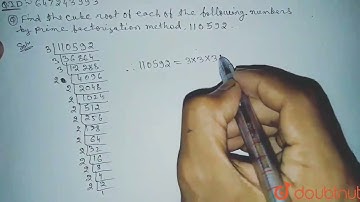 Q.ID - 647243393
Q Find the cube root of each of the following numbers
by prime factorization method. 110592.
Sol:-
3 | 110592
3 | 36864
3 | 12288
2 | 4096
2 | 2048
2 | 1024
2 | 512
2 | 256
2 | 128
2 | 64
2 | 32
2 | 16
2 | 8
2 | 4
2 | 2
1
∴ 110592 = 3×3×3
doubtnut